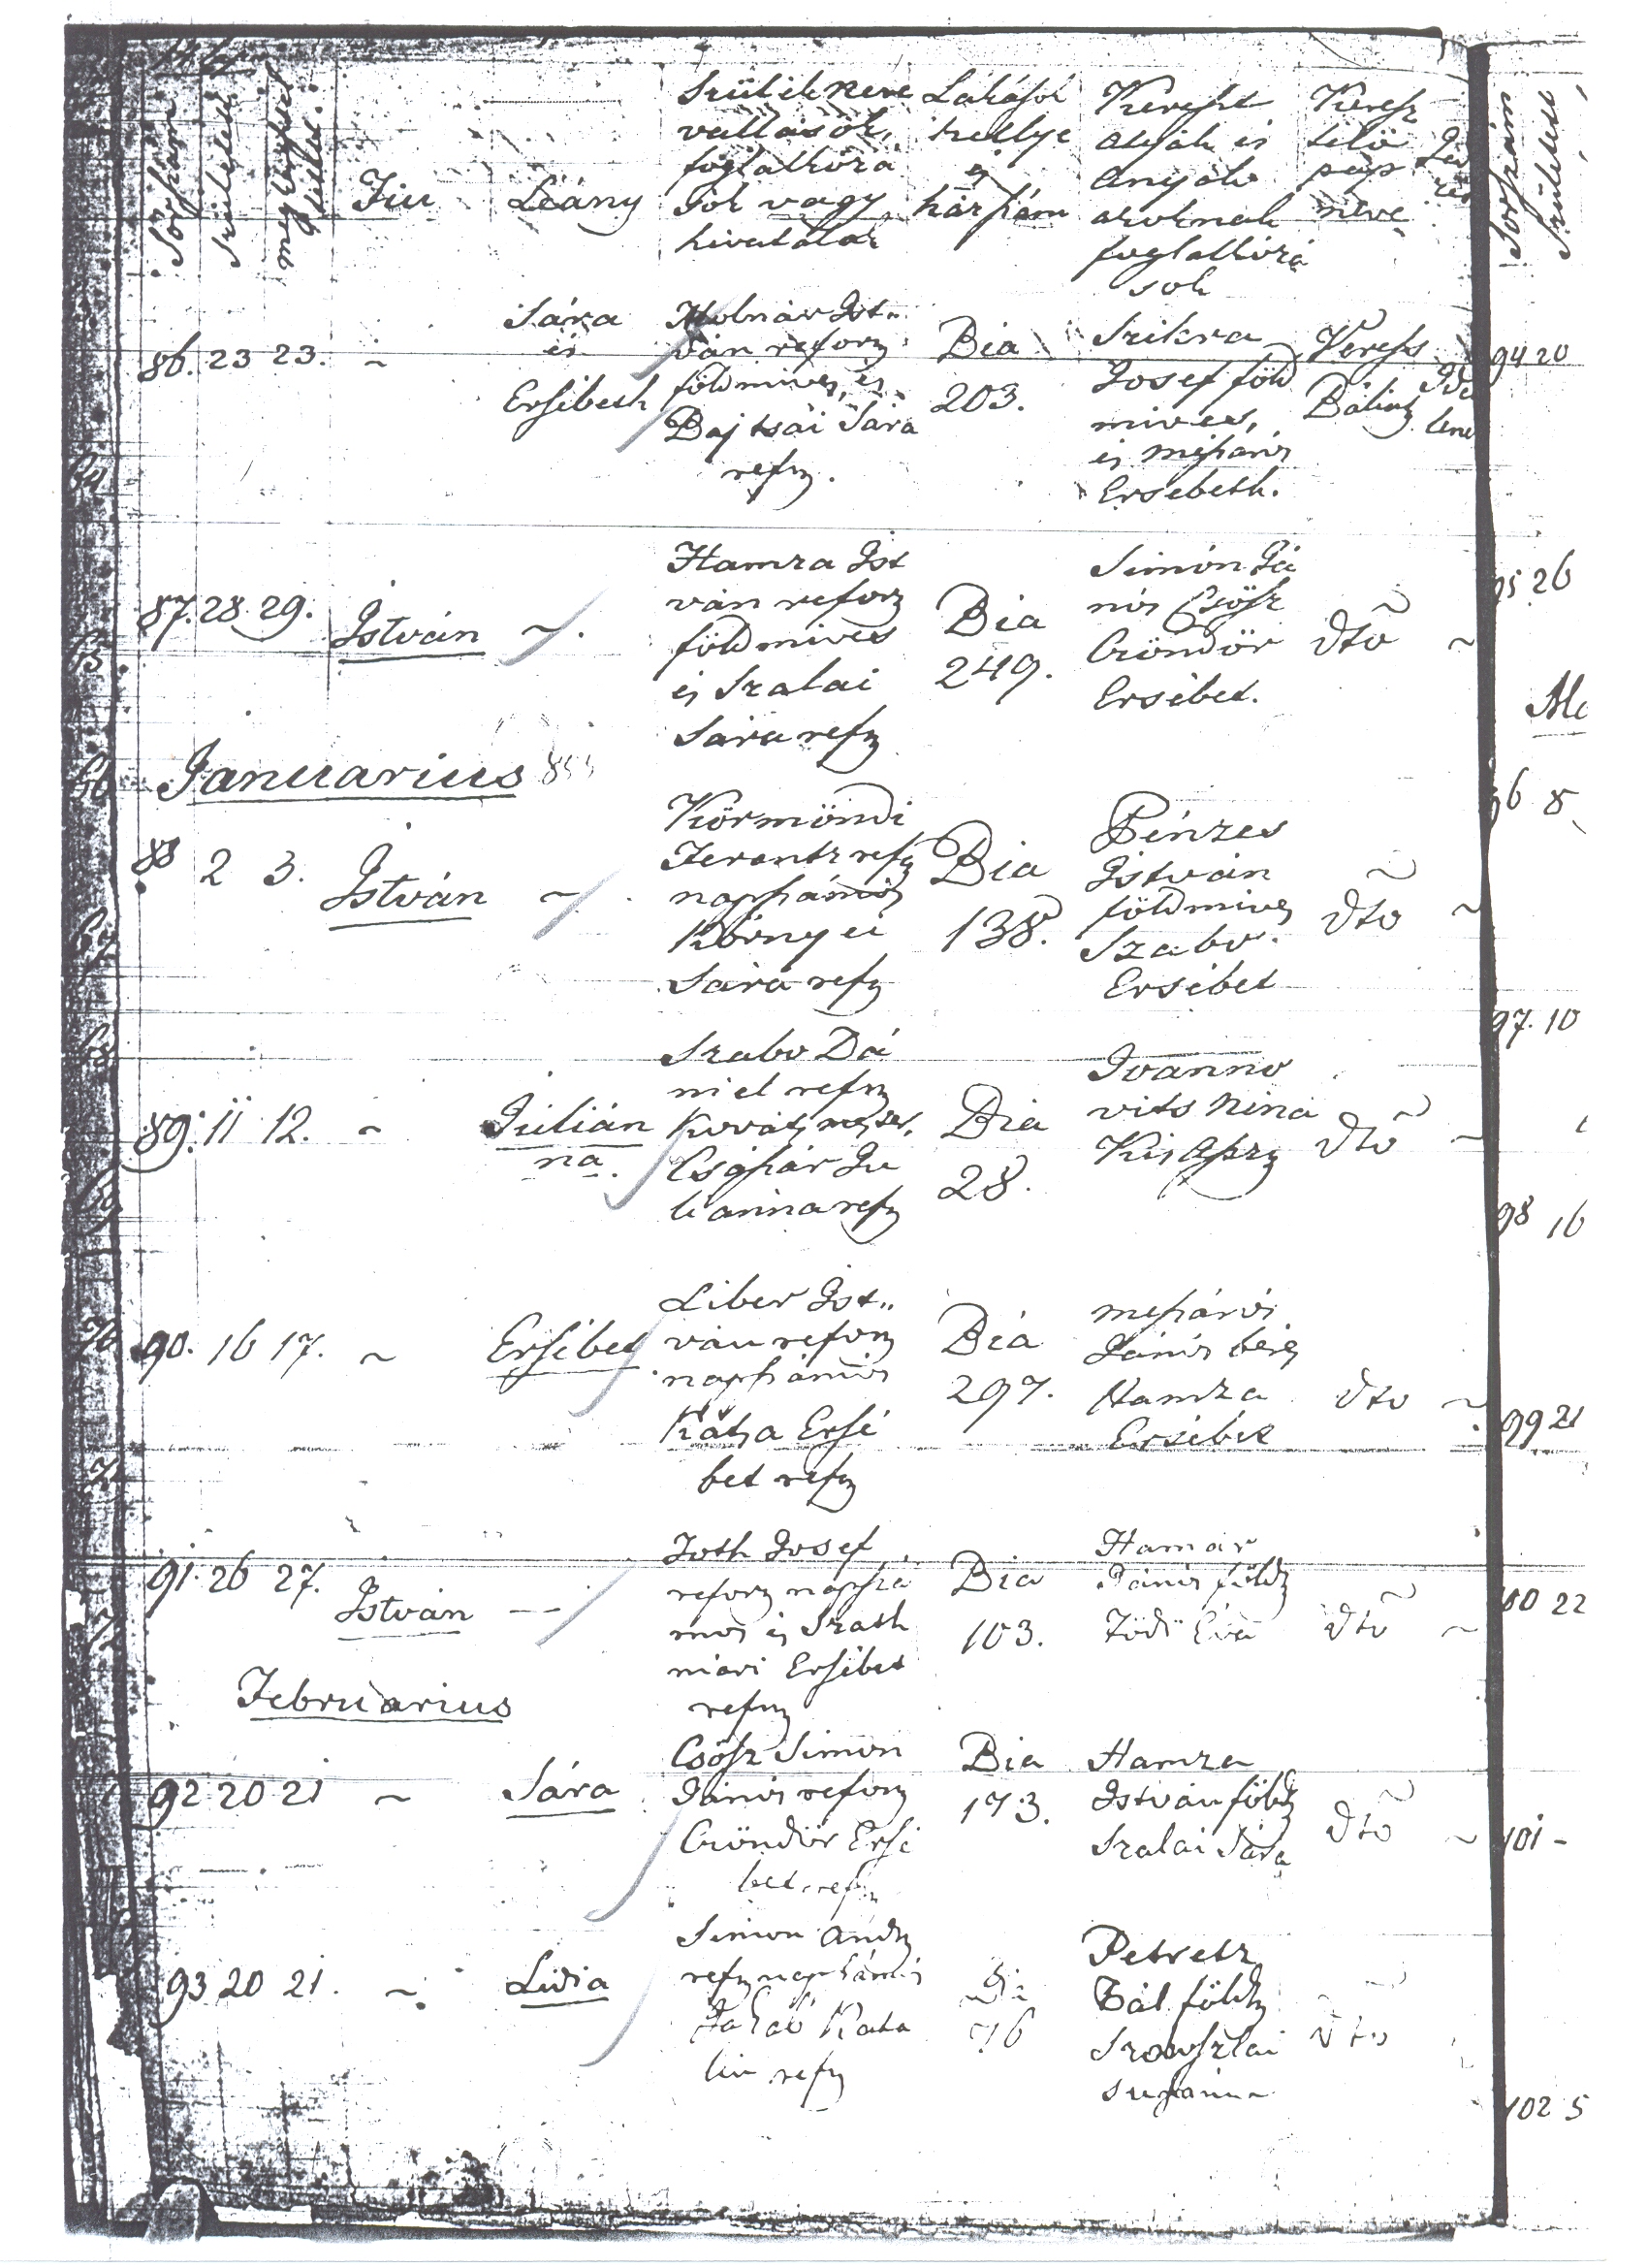 Sorszám
született
megkeresztel
Fiu
Leány
Szülék neve
vallások,
foglalkozá
sok vagy
hivatalok
Lakások
hellye
és
házszám
Kereszt
atyák és
anyák
azoknak
foglalkozá
sok
Keresz
telö
pap
neve
Sorszám
Született
86. 23 23. ~
Sára
és
Ersébeth
Molnár Ist„
ván reform
földmives, és
Bajtsai Sára
refm.
Bia
203.
Szikra
Josef föld
mives,
és Mészáros
Ersébeth.
Veress
Bálint
94 20
87. 28 29.
István ~.
Hamza Ist
ván reform
földmives
és Szalai
Sára refm
Bia
249.
Simon Já
nos Csősz
Göndör
Ersébet.
dto ~
95 26
Januarius
88 2 3.
István ~.
Körmöndi
Ferentz refm
napszámos
Környei
Sára refm
Bia
138.
Pénzes
István
földmives
Szabo
Ersébet
dto ~
96 8
89. 11 12. ~
Julián
na.
Szabo Dá
niel refm
Kováts mester,
Császár Ju
lianna refm
Bia
28.
Ioanno
vits Nina
Kis Assz
dto ~
97. 10
98 16
90. 16 17. ~
Ersébet
Liber Ist„
ván reform
napszámos
Kátza Ersé
bet refm
Bia
297.
Mészáros
János béres
Hamza
Ersébet
dto ~
99 21
91. 26 27.
István —
Toth Josef
reform napszá
mos és Szath
mári Ersébet
refm
Bia
103.
Hamar
János földm
Födi Éva
dto ~
100 22
Februarius
92 20 21 ~
Sára
Csősz Simon
János reform
Göndör Ersé
bet refm
Bia
173.
Hamza
István földm
Szalai Sára
dto ~
101 -
93 20 21. ~.
Lidia
Simon András
refm napszámos
Jakab Kata
lin refm
Bia
76
Petretz
Pál földm
Szoboszlai
Susánna
dto
102 5